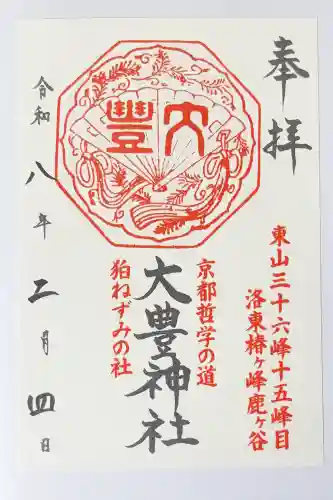 奉拝
東山三十六峰十五峰目
洛東椿ヶ峰鹿ヶ谷
大豊
京都哲学の道
大豊神社
狛ねずみの社
令和八年二月四日